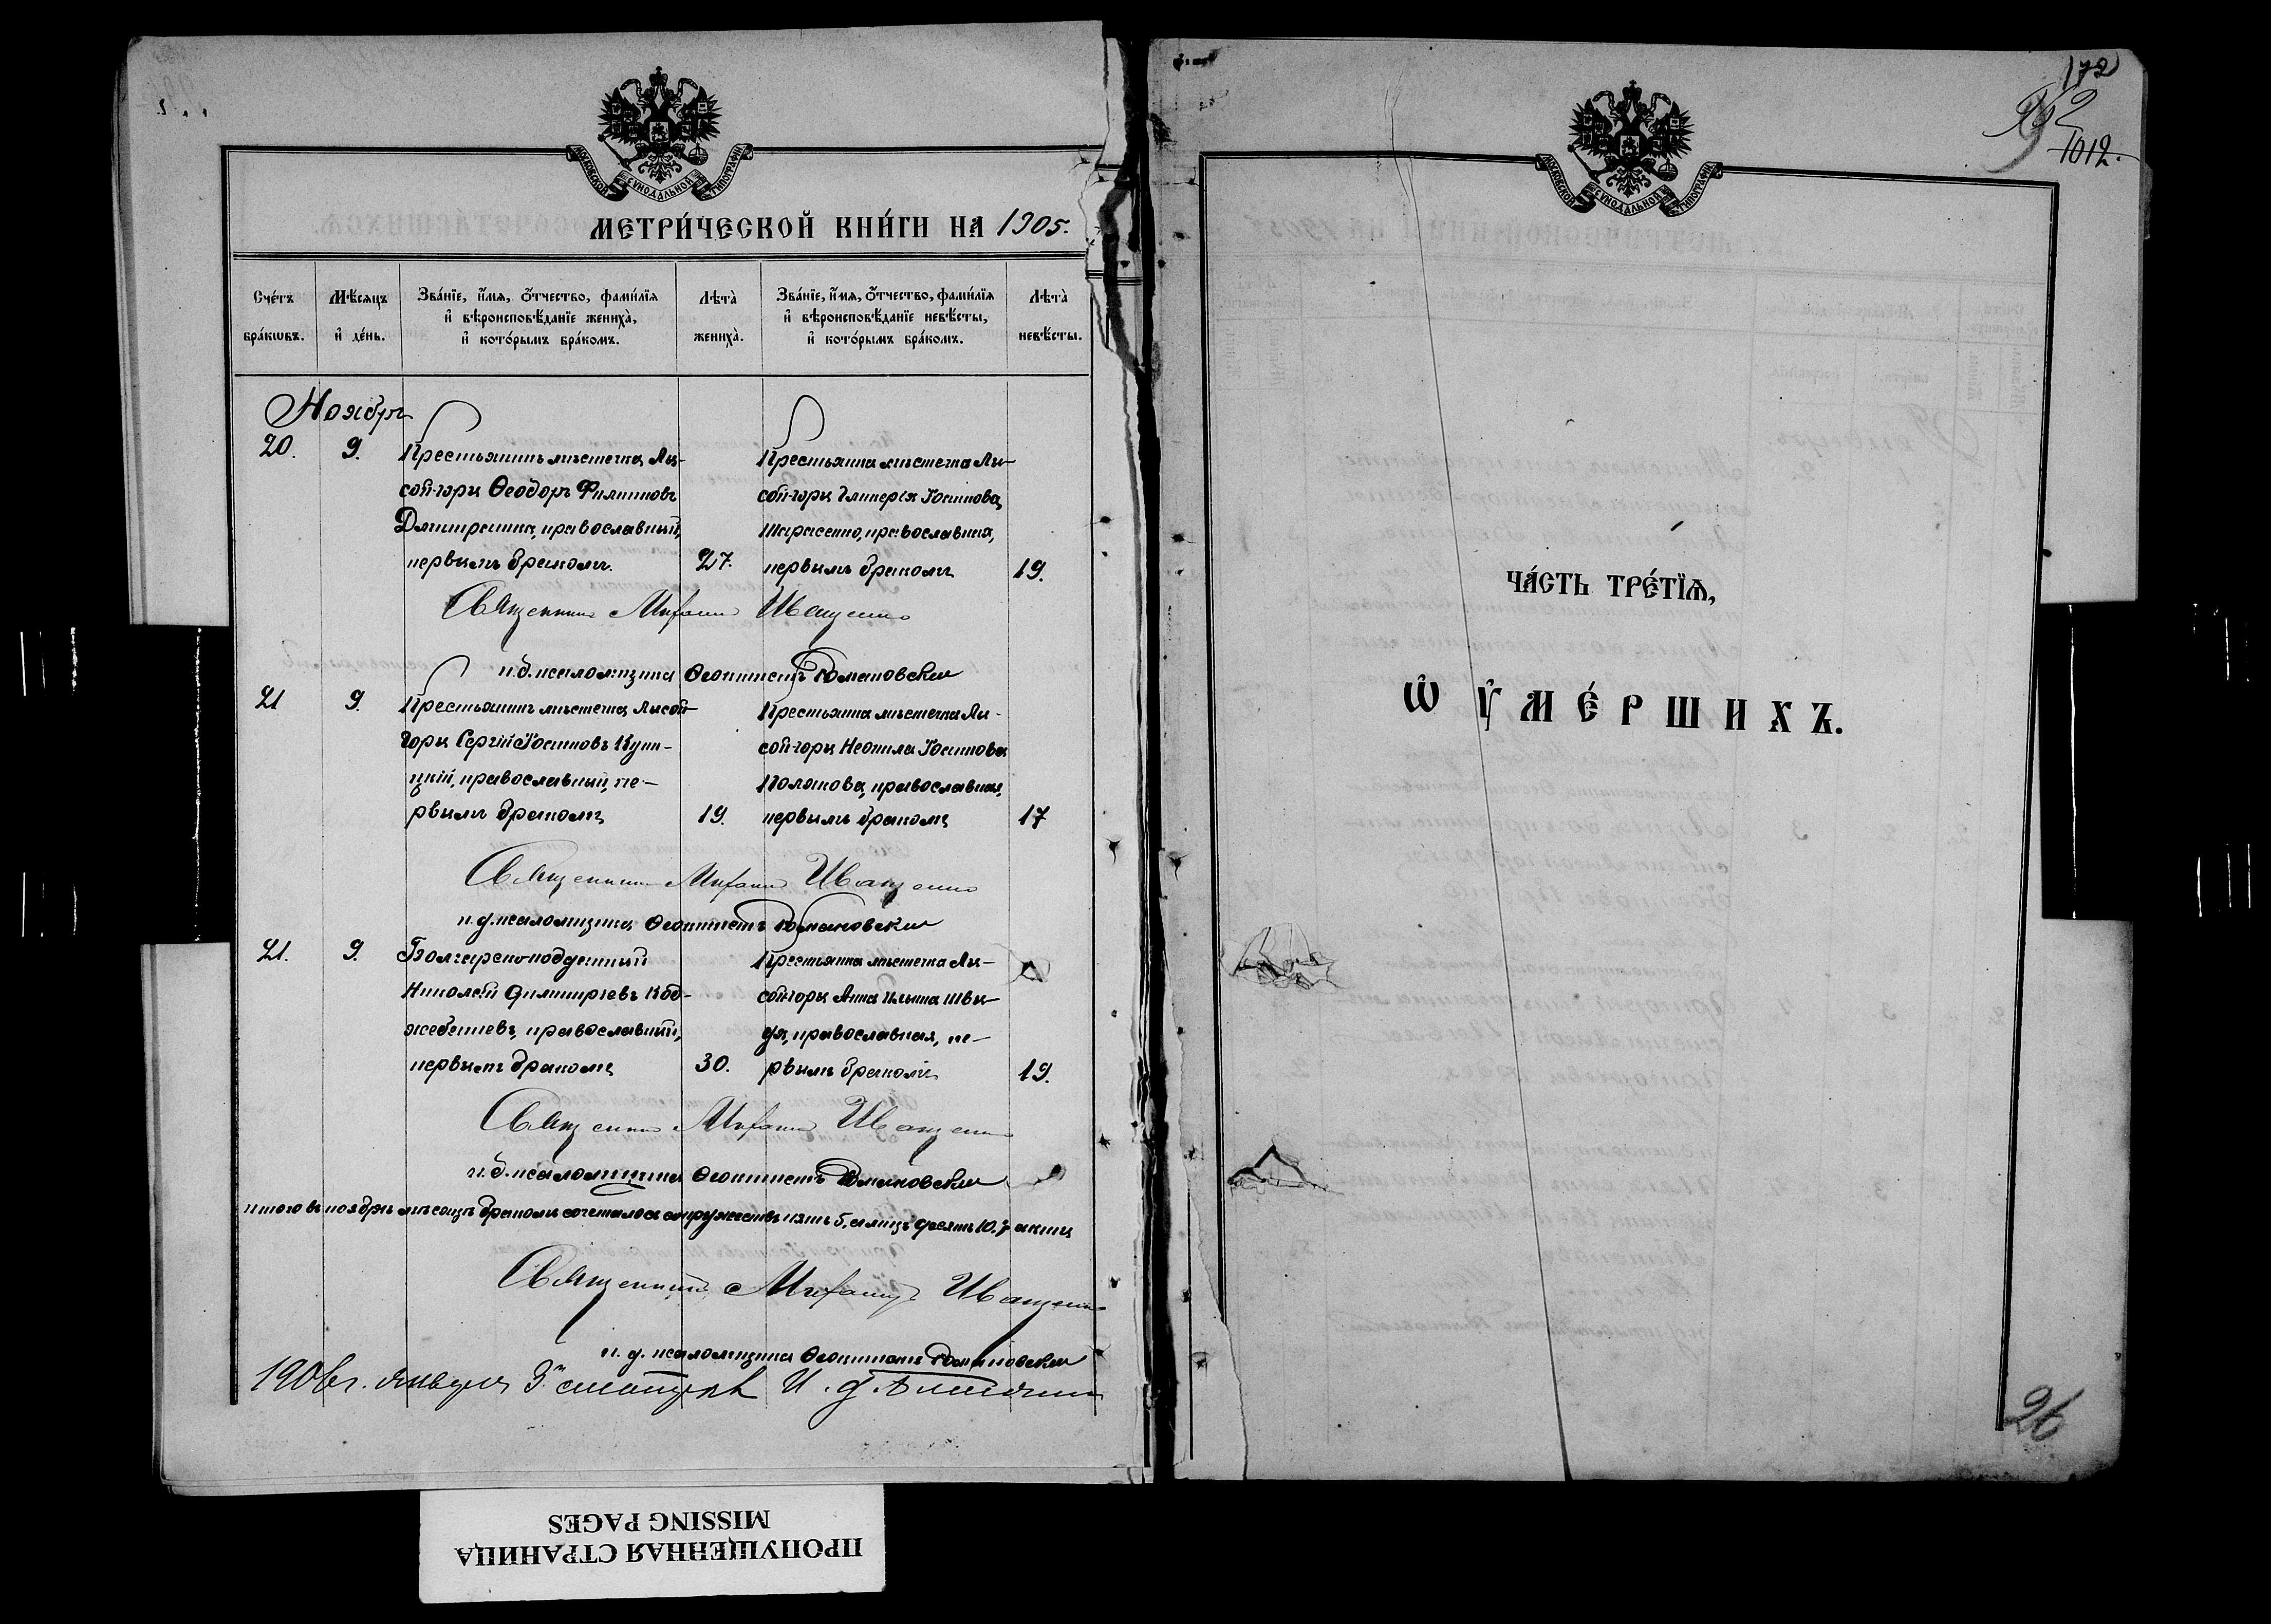 МОСКОВСКОЙ СѴНОДАЛЬНОЙ ТИПОГРАФІИ
МЕТРИ́ЧЕСКОЙ КНИ́ГИ НА 1905.
Сче́тъ бра́кѡвъ.
Мѣ́сяцъ и де́нь.
Зва́нїе, и́мя, ѻ́тчество, фами́лїя
и҆ вѣроисповѣ́данїе жениха̀,
и҆ кото́рымъ бра́комъ.
Лѣта̀ жениха̀.
Зва́нїе, и́мя, ѻ́тчество, фами́лїя
и҆ вѣроисповѣ́данїе невѣ́сты,
и҆ кото́рымъ бра́комъ.
Лѣта̀ невѣ́сты.
Ноябрь
20. 9. Крестьянинъ мѣстечка Лы-
сой-горы Ѳеодоръ Филиповъ
Дмитрашка, православный,
первымъ бракомъ. 27.
Крестьянка мѣстечка Лы-
сой-горы Гликерія Іосипова
Тарасенко, православная,
первымъ бракомъ 19.
Священникъ Михаилъ Иващенко
и.д. псаломщика Ѳеоктистъ Романовскій
21 9. Крестьянинъ мѣстечка Лысой
горы Сергій Іосиповъ Куп-
цкій, православный, пе-
рвымъ бракомъ 19.
Крестьянка мѣстечка Лы-
сой-горы Неонила Іосипова
православная,
первымъ бракомъ 17
Священникъ Михаилъ Иващенко
и.д. псаломщика Ѳеоктистъ Романовскій
21. 9. Болгарско-подданный
Николай Димитріевъ Код-
жебашевъ, православный,
первымъ бракомъ 30.
Крестьянка мѣстечка Лы-
сой-горы Анна Ильина Швы-
дя, православная, пе-
рвымъ бракомъ 19.
Священникъ Михаилъ Иващенко
и.д. псаломщика Ѳеоктистъ Романовскій
итого въ ноябрѣ мѣсяцѣ бракомъ сочеталось супружествъ пять 5, а лицъ десять 10.
Священникъ Михаилъ Иващенко
и.д. псаломщика Ѳеоктистъ Романовскій
1906 г. января 3 смотрѣлъ И. д.
МОСКОВСКОЙ СѴНОДАЛЬНОЙ ТИПОГРАФІИ
172
1012.
ЧА́СТЬ ТРЕ́ТЇѦ,
Ѡ҆ Оу҆МЕ́РШИХЪ.
26
ПРОПУЩЕННАЯ СТРАНИЦА
MISSING PAGES